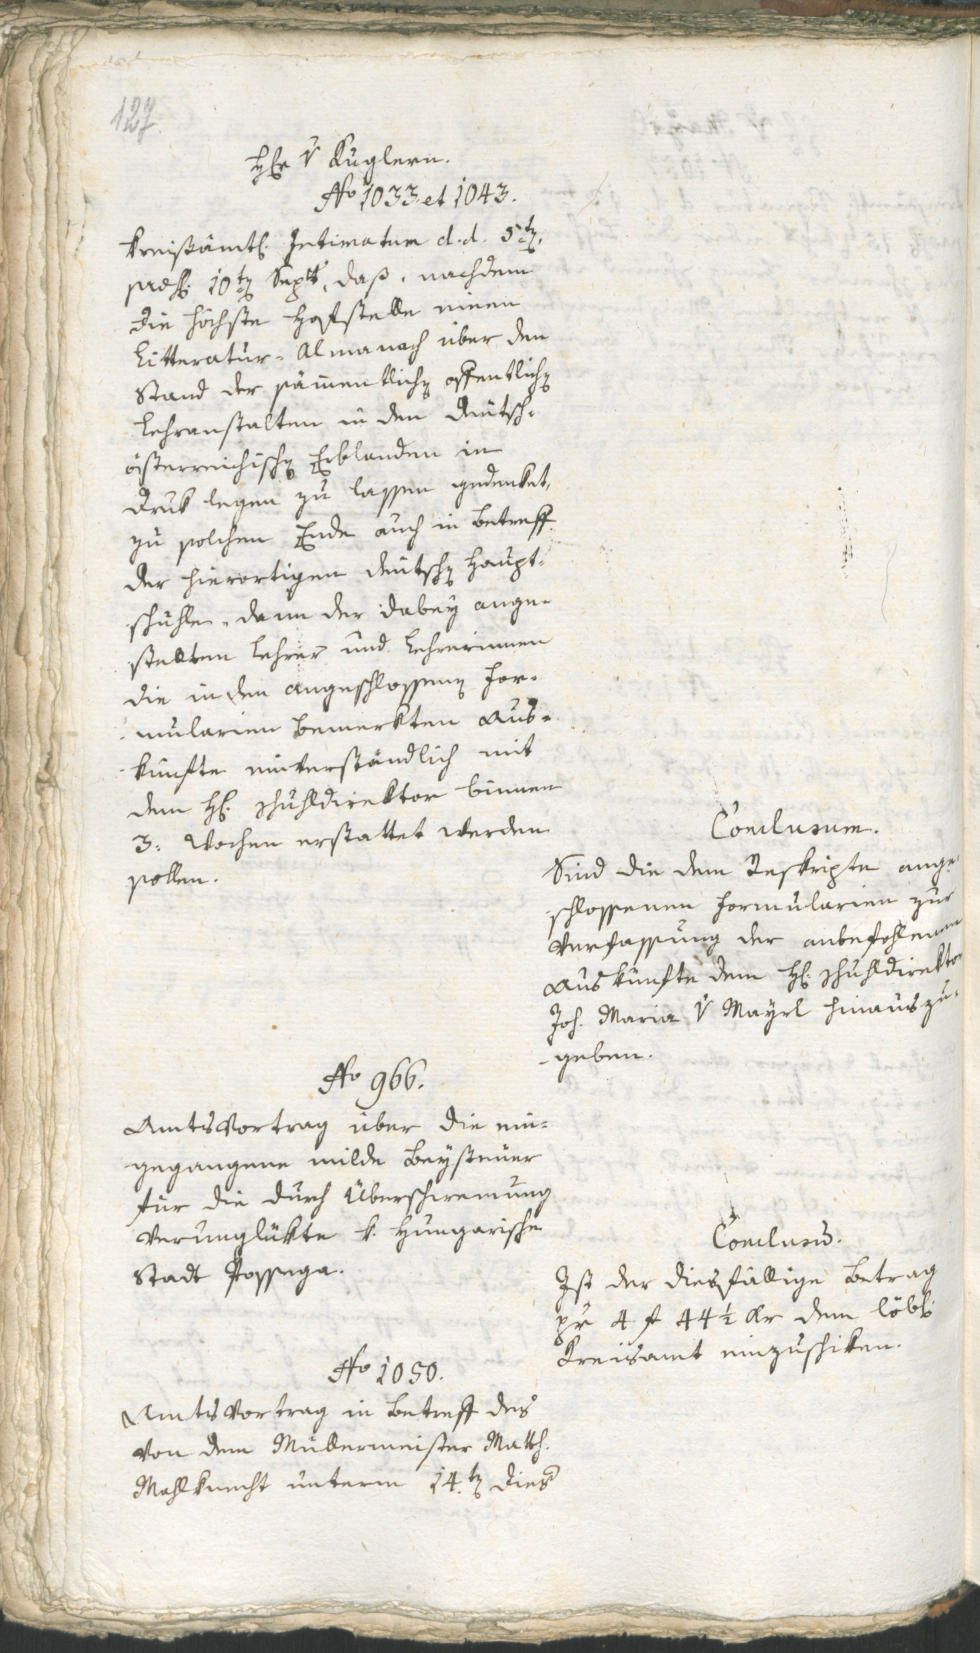 127.
Hr v Kuglern.
No 1033 et 1043.
Kreißämtl. Intimatum d.d. 5ten,
præs. 10ten Septb, daß, nachdem
die höchste Hofstelle einen
Litteratur-Almanach über den
Stand der sämentlichen offentlichen
Lehranstalten in den deutsch-
österreichischen Erblanden in
Druk legen zu lassen gedenket,
zu solchem Ende auch in Betreff
der hierortigen deutschen Haupt-
schuhle, dann der dabey ange-
stellten Lehrer und Lehrerinnen
die in den angeschlossenen For-
mularien bemerkten Aus-
künfte einverständlich mit
dem H. Schuhldirektor binnen
3. Wochen erstattet werden
sollen.
Conclusum.
Sind die dem Reskripte ange-
schlossenen Formularien zur
Verfassung der anbefohlenen
Auskünfte dem H. Schuhldirektor
Joh. Maria v Mayrl hinauszu-
geben.
No 966.
Amtsvortrag über die ein-
gegangene milde Beysteuer
für die durch Überschwemung
verunglükte k. hungarische
Stadt Possega.
Conclusum.
Ist der diesfällige Betrag
pr 4 f 44½ Kr dem löbl.
Kreisamt einzuschiken.
No 1050.
Amtsvortrag in Betreff des
von dem Müllermeister Math.
Mahlknecht unterm 14.ten dies